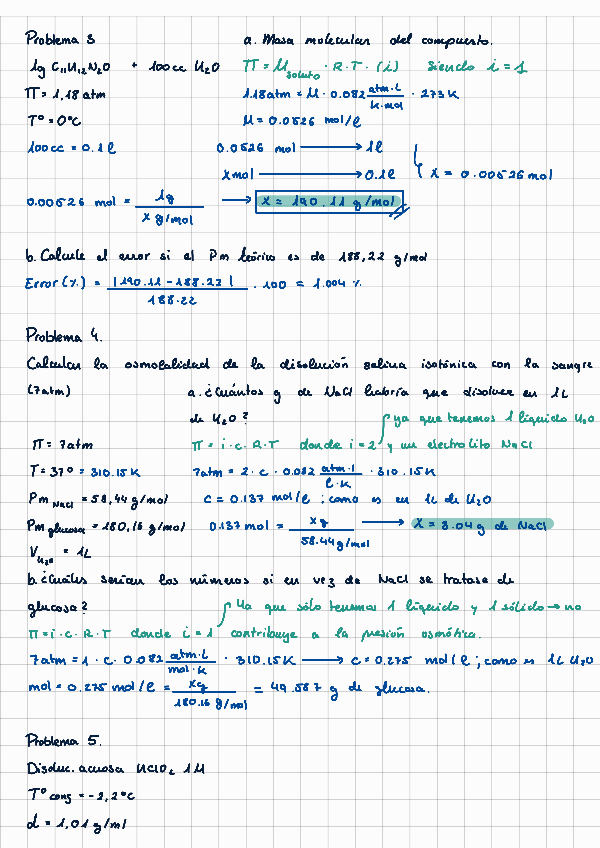 Problema 3 a. Masa molecular del compuesto.
1g C₁₁H₁₂N₂O + 100cc H₂O Π = M soluto · R · T · (i) siendo i = 1
Π = 1,18 atm 1.18 atm = M · 0.082 atm·l / k·mol · 273 K
Tº = 0ºC M = 0.0526 mol/l
100cc = 0.1 l 0.0526 mol ⟶ 1l
X mol ⟶ 0.1l X = 0.00526 mol
0.00526 mol = 1g / x g/mol ⟶ X = 190.11 g/mol
b. Calcule el error si el Pm teórico es de 188,22 g/mol
Error (%) = |190.11 - 188.22| / 188.22 · 100 = 1.004 %
Problema 4.
Calcular la osmolalidad de la disolución salina isotónica con la sangre
(7atm) a. ¿Cuántos g de NaCl habría que disolver en 1L
de H₂O? ya que tenemos 1 líquido H₂O
Π = 7atm Π = i · c · R · T donde i = 2 y un electrolito NaCl
T = 37º = 310.15K 7atm = 2 · c · 0.082 atm·l / l·K · 310.15K
Pm NaCl = 58,44 g/mol c = 0.137 mol/l ; como es en 1L de H₂O
Pm glucosa = 180,16 g/mol 0.137 mol = xg / 58.44 g/mol ⟶ X = 8.04 g de NaCl
V H₂O = 1L
b. ¿Cuáles serían los números si en vez de NaCl se tratase de
glucosa? Ya que sólo tenemos 1 líquido y 1 sólido → no
Π = i · c · R · T donde i = 1 contribuye a la presión osmótica.
7atm = 1 · c · 0.082 atm·l / mol·K · 310.15K ⟶ c = 0.275 mol/l ; como es 1L H₂O
mol = 0.275 mol/l = xg / 180.16 g/mol = 49.587 g de glucosa.
Problema 5.
Disoluc. acuosa HClO₂ 1M
Tº cong = -2,2ºC
d = 1,01 g/ml